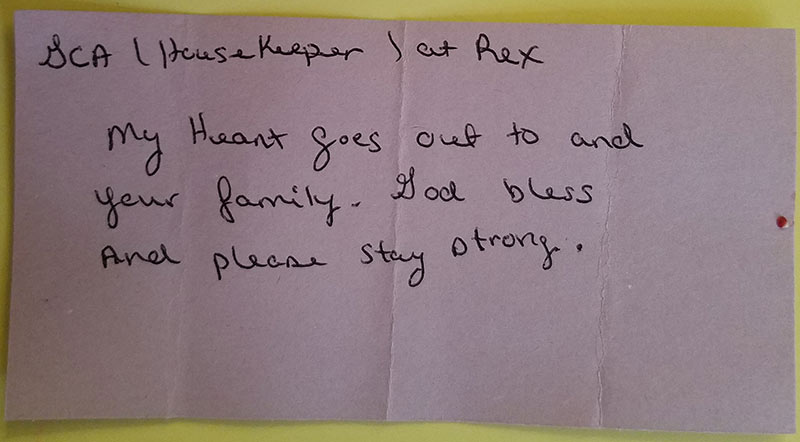 GCA (HouseKeeper) at Rex
My Heart goes out to and
your family. God bless
And please stay strong.